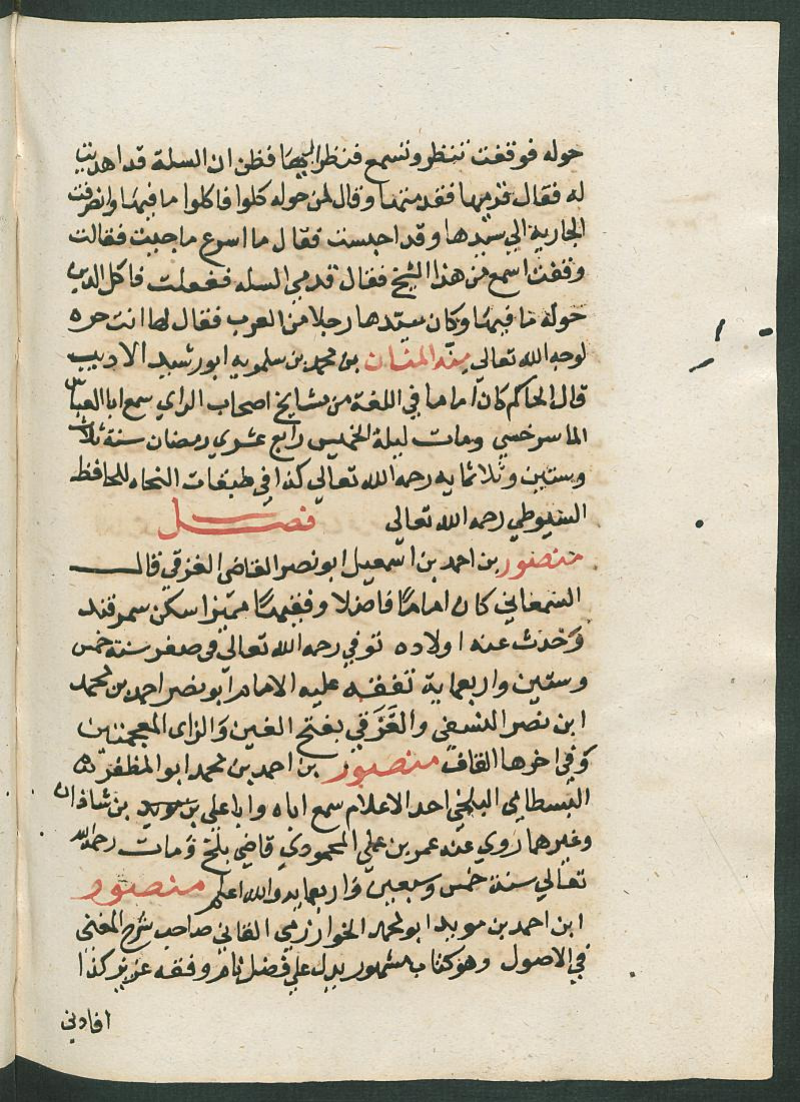 حوله فوقفت تنظر وتسمع فنظر اليها فظن ان السلة قد اهديت
له فقال قدميها فقدمتها وقال لمن حوله كلوا فاكلوا ما فيها وانصرفت
الجارية الي سيدها وقد احبست فقال ما اسرع ما جيت فقالت
وقفت اسمع من هذا الشيخ فقال قدمي السله ففعلت فاكل الذين
حوله ما فيها وكان سيدها رجلا من العرب فقال لها انت حره
لوجه الله تعالي منة المنان بن محمد بن سلمويه ابو رشيد الاديب
قال الحاكم كان اماما في اللغة من مشايخ اصحاب الراي سمع ابا العباس
الماسرخسي ومات ليلة الخميس رابع عشري رمضان سنة ثلاث
وستين وثلاثمايه رحمه الله تعالي كذا في طبقات النحاه للحافظ
السيوطي رحمه الله تعالى فصل
منصور بن احمد بن اسمعيل ابو نصر القاضي الغزقي قال
السمعاني كان اماما فاضلا وفقيها مميزا سكن سمرقند
وحدث عنه اولاده توفي رحمه الله تعالى في صفر سنة خمس
وستين واربعماية تفقه عليه الامام ابو نصر احمد بن محمد
ابن نصر النسفي والغَزَقي بفتح الغين والزاى المعجمتين
وفي اخرها القاف منصور بن احمد بن محمد ابو المظفر
البسطامي البلخي احد الاعلام سمع اباه وابا علي بن شاذان
وغيرهما روي عنه عمر بن علي المحمودي قاضي بلخ ومات رحمه الله
تعالي سنة خمس وسبعين واربعمايه والله اعلم منصور
ابن احمد بن مويد ابو محمد الخوارزمي القاني صاحب شرح المغني
في الاصول وهو كتاب مشهور يدل علي فضل تام وفقه عزيز كذا
افادني